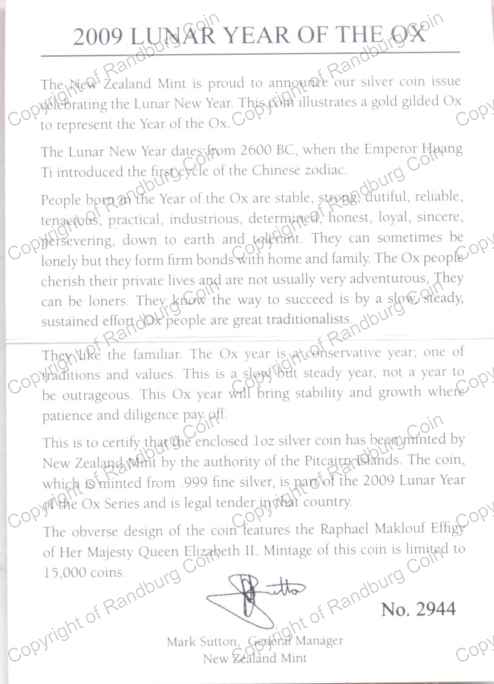 2009 LUNAR YEAR OF THE OX
The New Zealand Mint is proud to announce our silver coin issue
celebrating the Lunar New Year. This coin illustrates a gold gilded Ox
to represent the Year of the Ox.
The Lunar New Year dates from 2600 BC, when the Emperor Huang
Ti introduced the first cycle of the Chinese zodiac.
People born in the Year of the Ox are stable, strong, dutiful, reliable,
tenacious, practical, industrious, determined, honest, loyal, sincere,
persevering, down to earth and tolerant. They can sometimes be
lonely but they form firm bonds with home and family. The Ox people
cherish their private lives and are not usually very adventurous. They
can be loners. They know the way to succeed is by a slow, steady,
sustained effort. Ox people are great traditionalists.
They like the familiar. The Ox year is a conservative year; one of
traditions and values. This is a slow but steady year, not a year to
be outrageous. This Ox year will bring stability and growth where
patience and diligence pay off.
This is to certify that the enclosed 1oz silver coin has been minted by
New Zealand Mint by the authority of the Pitcairn Islands. The coin,
which is minted from .999 fine silver, is part of the 2009 Lunar Year
of the Ox Series and is legal tender in that country.
The obverse design of the coin features the Raphael Maklouf Effigy
of Her Majesty Queen Elizabeth II. Mintage of this coin is limited to
15,000 coins.
No. 2944
Mark Sutton, General Manager
New Zealand Mint
Copyright of Randburg Coin